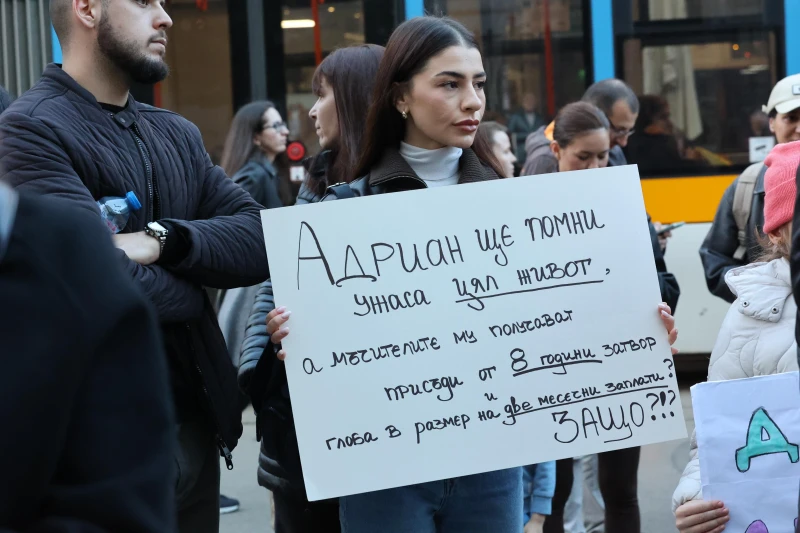 Адриан ще помни
ужаса цял живот,
а мъчителите му получават
присъди от 8 години затвор
и
глоба в размер на две месечни заплати?
ЗАЩО?!?
А